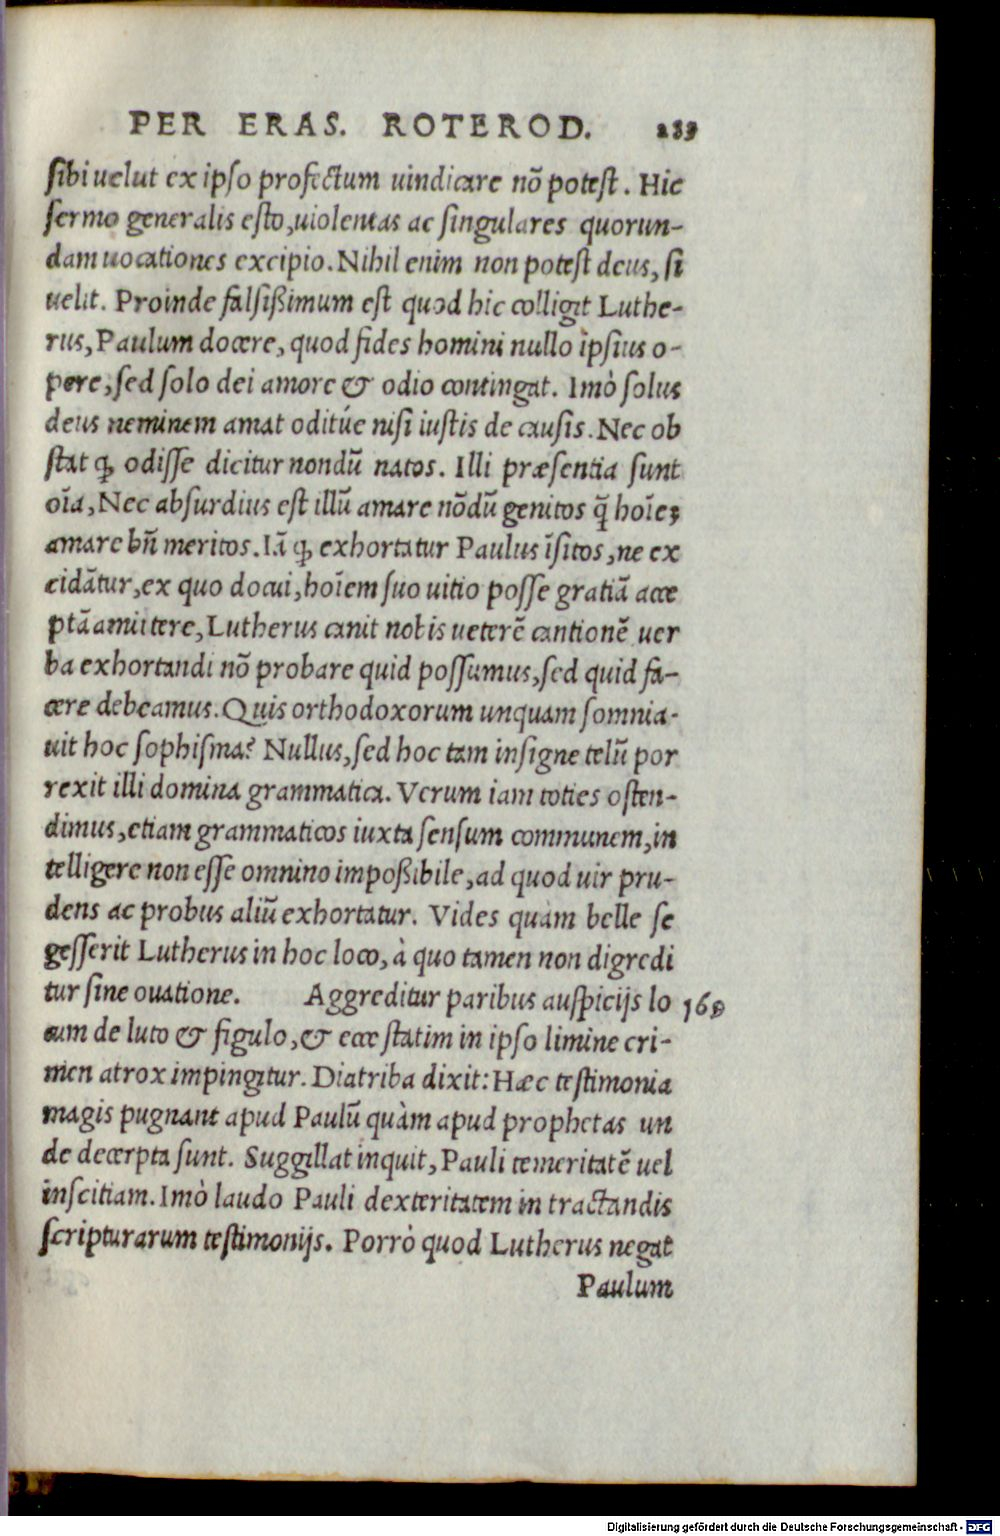 PER ERAS. ROTEROD. 233
ſibi uelut ex ipſo profectum uindicare nõ poteſt. Hic
ſermo generalis eſto, uiolentas ac ſingulares quorun-
dam uocationes excipio. Nihil enim non poteſt deus, ſi
uelit. Proinde falſißimum eſt quod hic colligit Luthe-
rus, Paulum docere, quod fides homini nullo ipſius o-
pere, ſed ſolo dei amore & odio contingat. Imò ſolus
deus neminem amat oditúe niſi iuſtis de cauſis. Nec ob
ſtat ꝙ odiſſe dicitur nondũ natos. Illi præſentia ſunt
oĩa, Nec abſurdius eſt illũ amare nõdũ genitos q̃ hoĩes
amare bñ meritos. Iã ꝙ exhortatur Paulus ĩſitos, ne ex
cidãtur, ex quo docui, hoĩem ſuo uitio poſſe gratiã acce
ptã amittere, Lutherus canit nobis ueterẽ cantionẽ uer
ba exhortandi nõ probare quid poſſumus, ſed quid fa-
cere debeamus. Quis orthodoxorum unquam ſomnia-
uit hoc ſophiſma? Nullus, ſed hoc tam inſigne telũ por
rexit illi domina grammatica. Verum iam toties oſten-
dimus, etiam grammaticos iuxta ſenſum communem, in
telligere non eſſe omnino impoßibile, ad quod uir pru-
dens ac probus aliũ exhortatur. Vides quàm belle ſe
geſſerit Lutherus in hoc loco, à quo tamen non digredi
tur ſine ouatione. Aggreditur paribus auſpicijs lo 169
cum de luto & figulo, & ecce ſtatim in ipſo limine cri-
men atrox impingitur. Diatriba dixit: Hæc teſtimonia
magis pugnant apud Paulũ quàm apud prophetas un
de decerpta ſunt. Suggillat inquit, Pauli temeritatẽ uel
inſcitiam. Imò laudo Pauli dexteritatem in tractandis
ſcripturarum teſtimonijs. Porrò quod Lutherus negat
Paulum
Digitalisierung gefördert durch die Deutsche Forschungsgemeinschaft - DFG